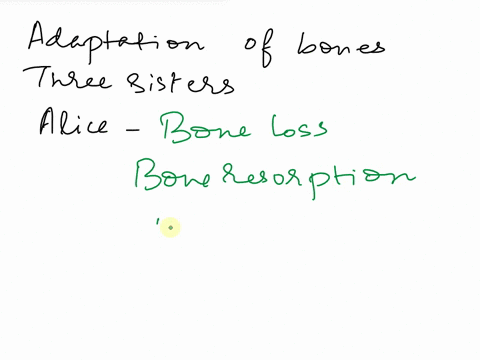 Adaptation of bones
Three sisters
Alice - Bone loss
Bone resorption